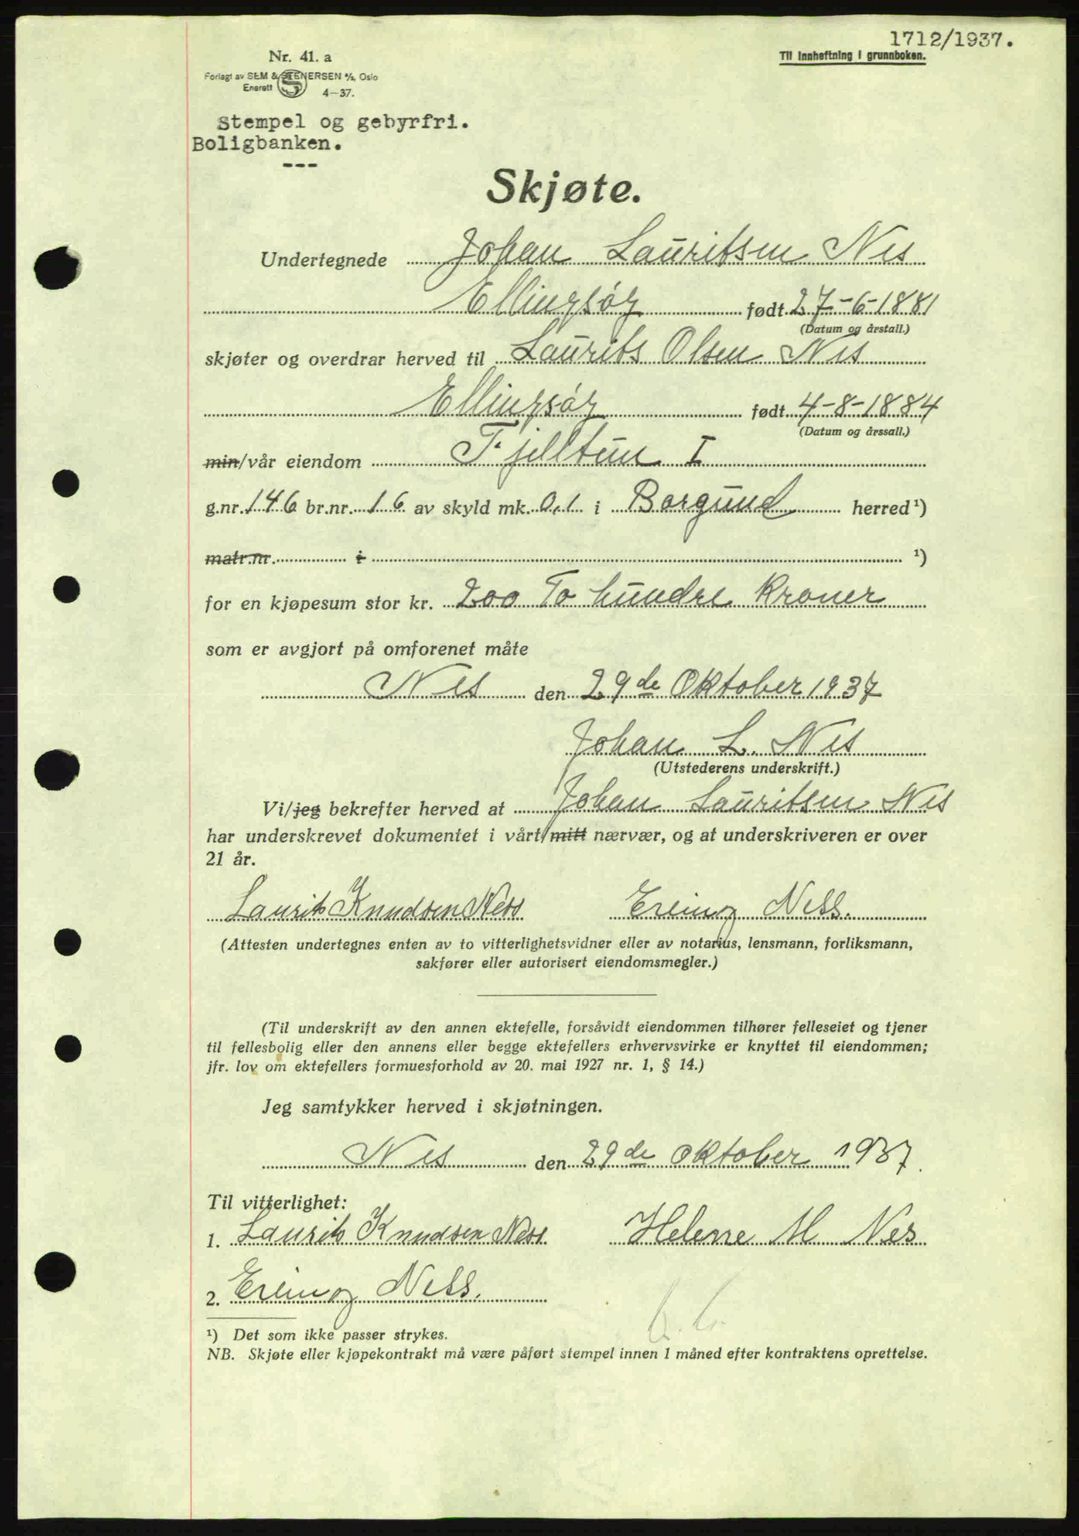 1712/1937.
Til innheftning i grunnboken.
Nr. 41. a
Forlagt av SEM & STENERSEN A/S, Oslo
Enerett 4-37.
Stempel og gebyrfri.
Boligbanken.
---
Skjøte.
Undertegnede Johan Lauritsen Nes
Ellingsöy født 27-6-1881
(Datum og årstall.)
skjøter og overdrar herved til Laurits Olsen Nes
Ellingsöy født 4-8-1884
(Datum og årssall.)
min/vår eiendom Fjelltun I
g.nr. 146 br.nr. 16 av skyld mk. 0,1 i Borgund herred ¹)
matr.nr. i ¹)
for en kjøpesum stor kr. 200 To hundre Kroner
som er avgjort på omforenet måte
Nes den 29de Oktober 1937
Johan L. Nes
(Utstederens underskrift.)
Vi/jeg bekrefter herved at Johan Lauritsen Nes
har underskrevet dokumentet i vårt/mitt nærvær, og at underskriveren er over
21 år.
Laurits Knudsen Ness Erling Ness.
(Attesten undertegnes enten av to vitterlighetsvidner eller av notarius, lensmann, forliksmann,
sakfører eller autorisert eiendomsmegler.)
(Til underskrift av den annen ektefelle, forsåvidt eiendommen tilhører felleseiet og tjener
til fellesbolig eller den annens eller begge ektefellers erhvervsvirke er knyttet til eiendommen;
jfr. lov om ektefellers formuesforhold av 20. mai 1927 nr. 1, § 14.)
Jeg samtykker herved i skjøtningen.
Nes den 29de oktober 1937.
Til vitterlighet:
1. Laurits Knudsen Ness Helene M Nes
2. Erling Ness.
¹) Det som ikke passer strykes.
NB. Skjøte eller kjøpekontrakt må være påført stempel innen 1 måned efter kontraktens oprettelse.